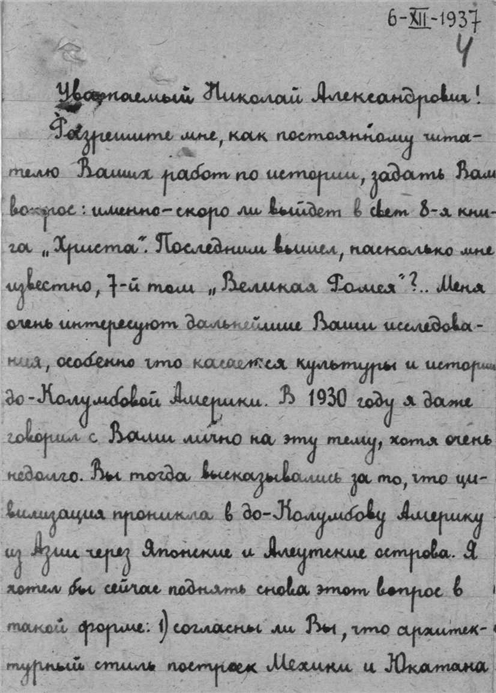 6-XII-1937
4
Уважаемый Николай Александрович!
Разрешите мне, как постоянному чита-
телю Ваших работ по истории, задать Вам
вопрос: именно-скоро ли выйдет в свет 8-я кни-
га „Христа". Последним вышел, насколько мне
известно, 7-й том „Великая Ромея"?.. Меня
очень интересуют дальнейшие Ваши исследова-
ния, особенно что касается культуры и истории
до-Колумбовой Америки. В 1930 году я даже
говорил с Вами лично на эту тему, хотя очень
недолго. Вы тогда высказывались за то, что ци-
вилизация проникла в до-Колумбову Америку
из Азии через Японские и Алеутские острова. Я
хотел бы сейчас поднять снова этот вопрос в
такой форме: 1) согласны ли Вы, что архитек-
турный стиль построек Мехики и Юкатана